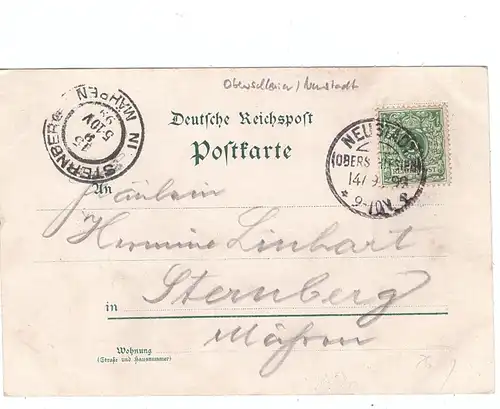 Oberschlesien / Neustadt
Deutsche Reichspost
Postkarte
STERNBERG IN MÄHREN
NEUSTADT
(OBERSCHLESIEN)
9-10V.
An
Fräulein
Hermine Linhart
in Sternberg
Mähren
Wohnung
(Straße und Hausnummer)